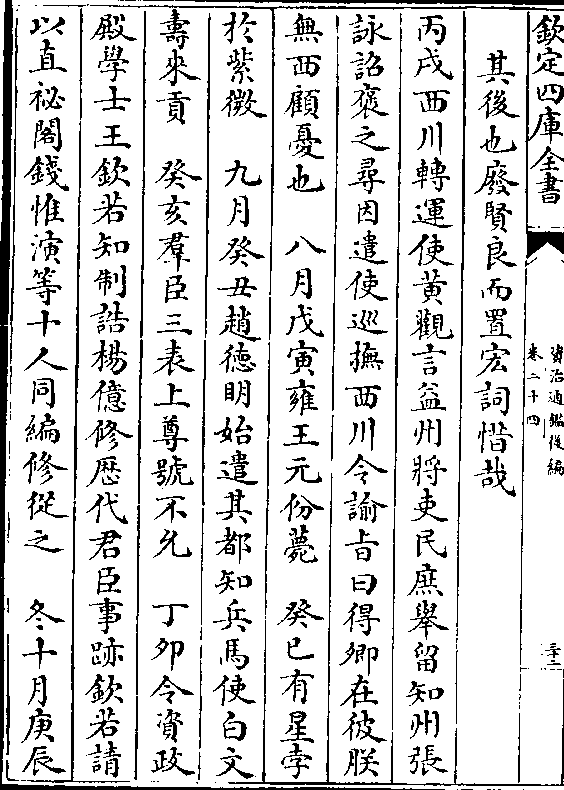 欽定四庫全書
資治通鑑後編
卷二十四
三十二
其後也廢賢良而置宏詞惜哉
丙戌西川轉運使黃觀言益州將吏民庶舉留知州張
詠詔褒之尋因遣使巡撫西川令諭旨曰得卿在彼朕
無西顧憂也　八月戊寅雍王元份薨　癸巳有星孛
於紫微　九月癸丑趙德明始遣其都知兵馬使白文
壽來貢　癸亥羣臣三表上尊號不允　丁卯令資政
殿學士王欽若知制誥楊億修歷代君臣事跡欽若請
以直祕閣錢惟演等十人同編修從之　冬十月庚辰